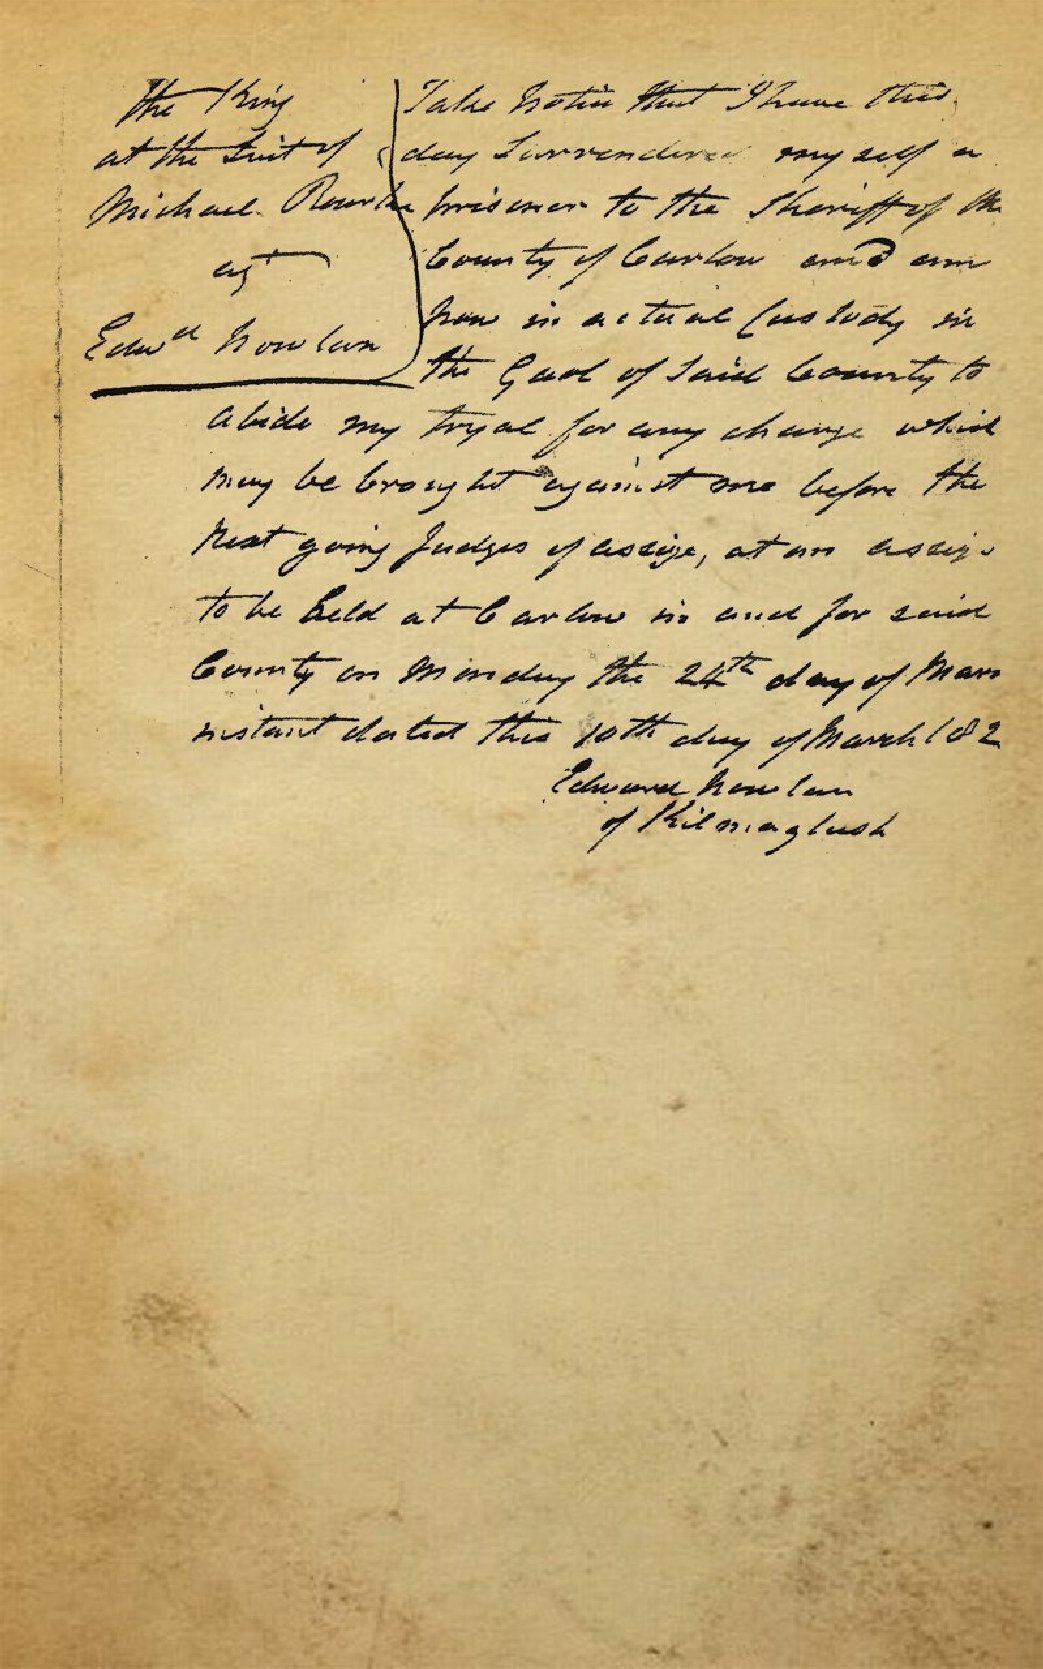 The King
at the Suit of
Michael Rourke
agt
Edwd Nowlan
Take Notice that I have this
day Surrendered myself a
prisoner to the Sheriff of the
County of Carlow and am
now in actual Custody in
the Gaol of Said County to
abide my tryal for any charge which
may be brought against me before the
next going Judges of assize, at an assize
to be held at Carlow in and for said
County on Monday the 24th day of Marc
instant dated this 10th day of March 182
Edward Nowlan
of Kilmaglush